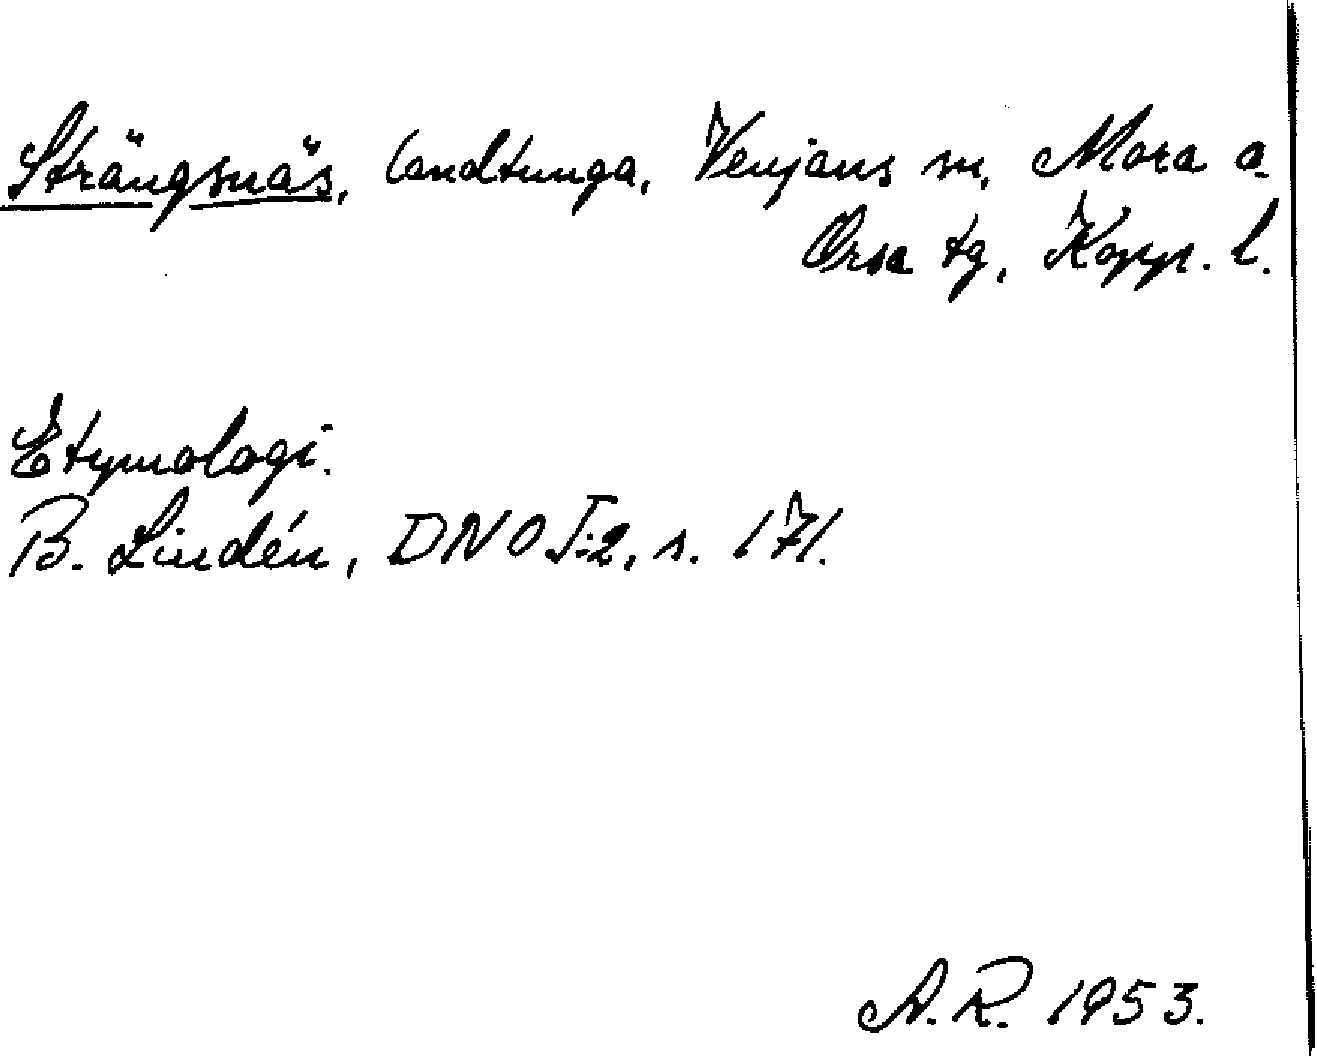 Strängsnäs, landtunga, Venjans sn, Mora o.
Orsa tg, Kopp. l.
Etymologi.
B. Lindén, DNO I:2, s. 171.
A.R. 1953.